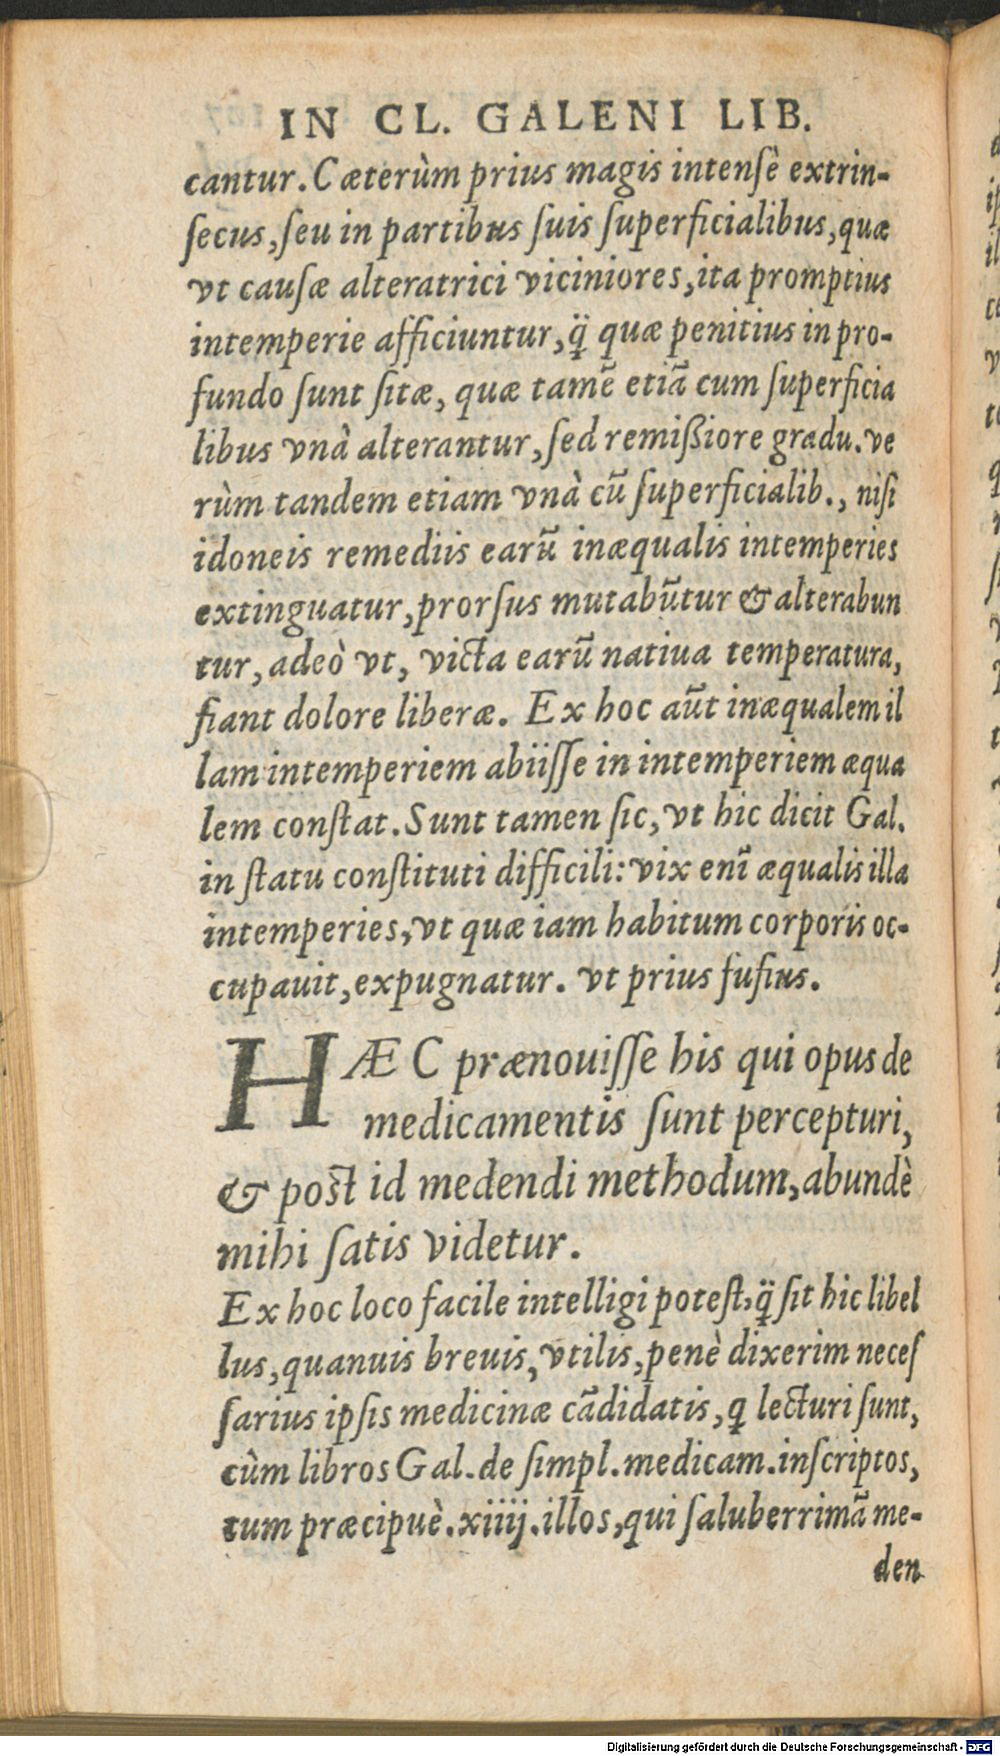 IN CL. GALENI LIB.
cantur. Cæterùm prius magis intensè extrin-
ſecus, ſeu in partibus ſuis ſuperficialibus, quæ
vt cauſæ alteratrici viciniores, ita promptius
intemperie afficiuntur, q̈ quæ penitius in pro-
fundo ſunt ſitæ, quæ tamē etiā cum ſuperficia
libus vnà alterantur, ſed remißiore gradu. ve
rùm tandem etiam vnà cū ſuperficialib., niſi
idoneis remediis earū inæqualis intemperies
extinguatur, prorſus mutabūtur & alterabun
tur, adeò vt, victa earū natiua temperatura,
fiant dolore liberæ. Ex hoc aūt inæqualem il
lam intemperiem abiiſſe in intemperiem æqua
lem conſtat. Sunt tamen ſic, vt hic dicit Gal.
in ſtatu conſtituti difficili: vix enī æqualis illa
intemperies, vt quæ iam habitum corporis oc-
cupauit, expugnatur. vt prius fuſius.
HÆC prænouiſſe his qui opus de
medicamentis ſunt percepturi,
& poſt id medendi methodum, abundè
mihi ſatis videtur.
Ex hoc loco facile intelligi poteſt, q̈ ſit hic libel
lus, quanuis breuis, vtilis, penè dixerim neceſ
ſarius ipſis medicinæ cādidatis, q lecturi ſunt,
cùm libros Gal. de ſimpl. medicam. inſcriptos,
tum præcipuè. xiiij. illos, qui ſaluberrimā me-
den
Digitalisierung gefördert durch die Deutsche Forschungsgemeinschaft - DFG